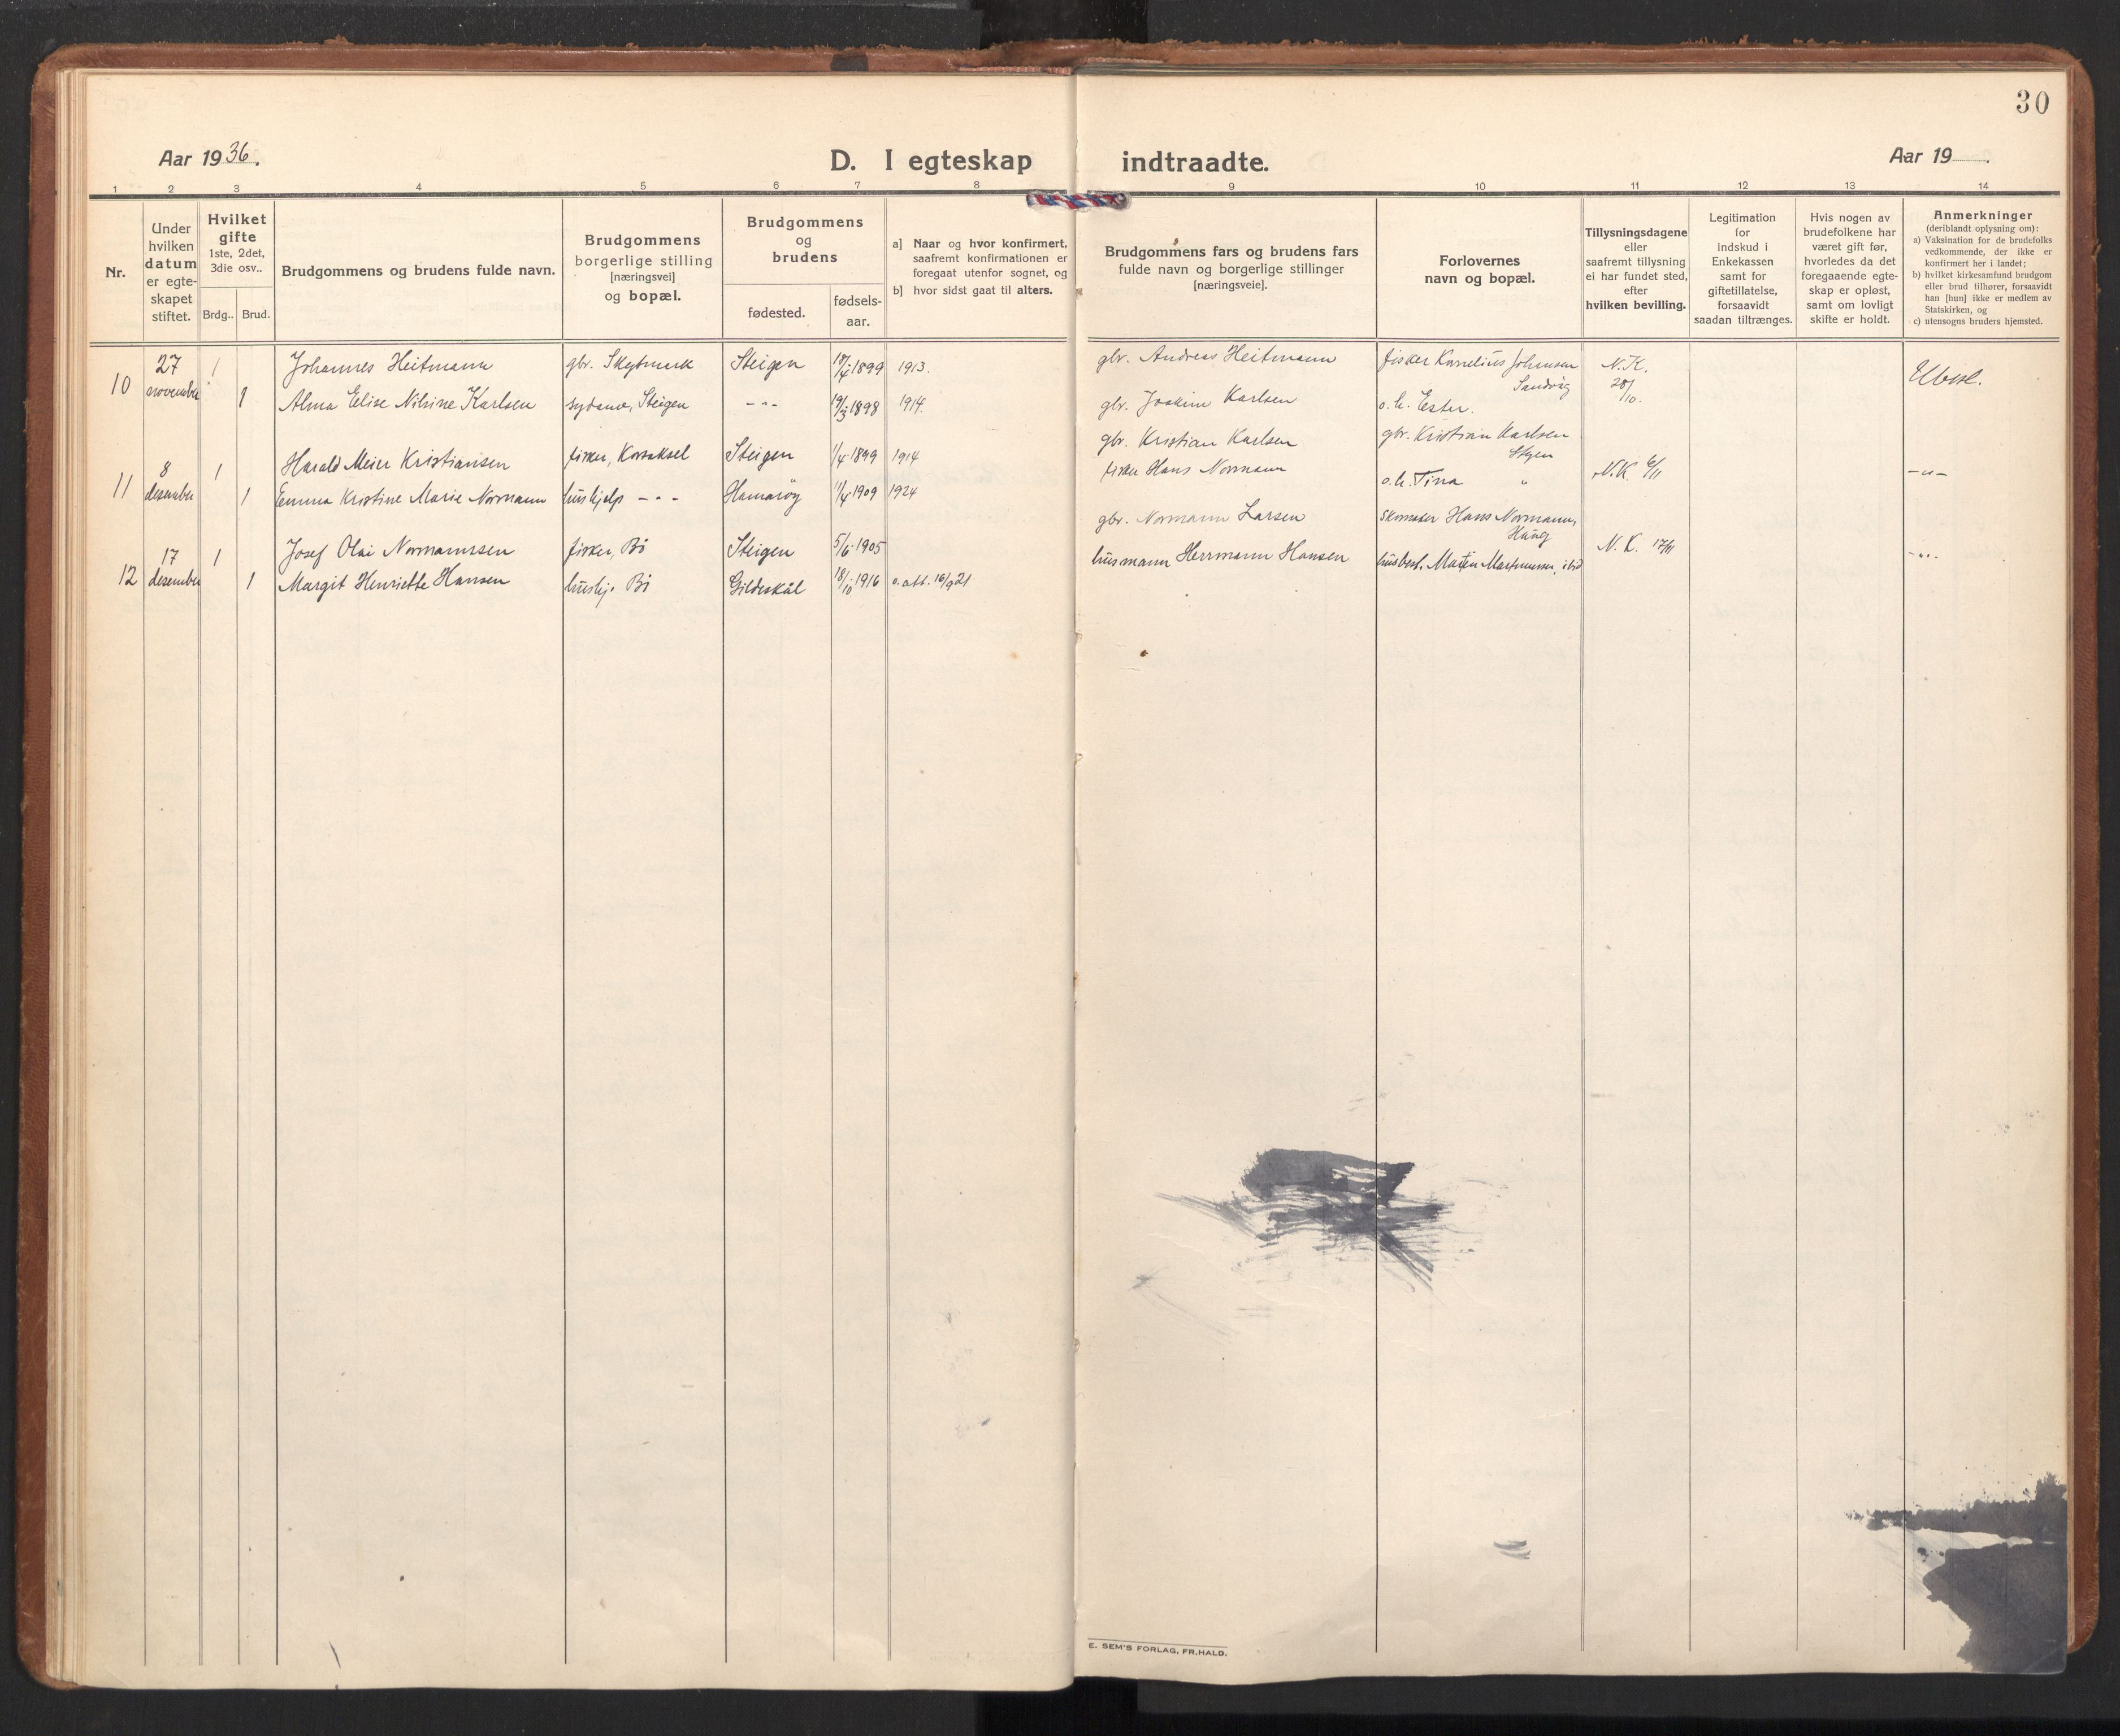 30
Aar 1936.
D. I egteskap indtraadte.
Aar 19
1 2 3 4 5 6 7 8 9 10 11 12 13 14
Nr.
Under
hvilken
datum
er egte-
skapet
stiftet.
Hvilket
gifte
1ste, 2det,
3die osv..
Brdg.. Brud.
Brudgommens og brudens fulde navn.
Brudgommens
borgerlige stilling
[næringsvei]
og bopæl.
Brudgommens
og
brudens
fødested.
fødsels-
aar.
a] Naar og hvor konfirmert,
saafremt konfirmationen er
foregaat utenfor sognet, og
b] hvor sidst gaat til alters.
Brudgommens fars og brudens fars
fulde navn og borgerlige stillinger
[næringsveie].
Forlovernes
navn og bopæl.
Tillysningsdagene
eller
saafremt tillysning
ei har fundet sted,
efter
hvilken bevilling.
Legitimation
for
indskud i
Enkekassen
samt for
giftetillatelse,
forsaavidt
saadan tiltrænges.
Hvis nogen av
brudefolkene har
været gift før,
hvorledes da det
foregaaende egte-
skap er opløst,
samt om lovligt
skifte er holdt.
Anmerkninger
(deriblandt oplysning om):
a) Vaksination for de brudefolks
vedkommende, der ikke er
konfirmert her i landet;
b) hvilket kirkesamfund brudgom
eller brud tilhører, forsaavidt
han [hun] ikke er medlem av
Statskirken, og
c) utensogns bruders hjemsted.
10 27 november 1 Johannes Heitmann gbr. Skytmark Steigen 1899 1913. gbr. Andreas Heitmann fisker Kornelius Johansen Sandvig N.K. 28/10.
1 Alma Elise Nilsine Karlsen sydame, Steigen -"- 19/3 1898 1914. gbr. Joakim Karlsen o.h. Ester.
11 8 desember 1 Harald Meier Kristiansen fisker, Korsaksel Steigen 1/4 1899 1914 gbr. Kristian Karlsen gbr. Kristian Karlsen
1 Emma Kristine Marie Normann hushjelp -"- Hamarøy 11/4 1909 1924 fisker Hans Normann o.h. Tina " N.K. 6/11 -"-
12 17 desember 1 Josef Olai Normannsen fisker, Bø Steigen 5/6 1905 gbr. Normann Larsen skomaker Hans Normann, Haug N.K. 17/11 -"-
1 Margit Henriette Hansen hushj. Bø Gildeskål 18/10 1916 o. att. 16/9 21 husmann Herrmann Hansen husbest. Martin Martinussen, ibid
E. SEM'S FORLAG, FR.HALD.